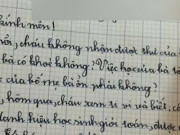 kính mến!
rồi, cháu không nhận được thư của
bà có khoẻ không? Việc học của
của bố mẹ bà ổn phải không?
, hôm qua, cháu xem ti vi và biết, có
danh hiệu học sinh giỏi toàn, được